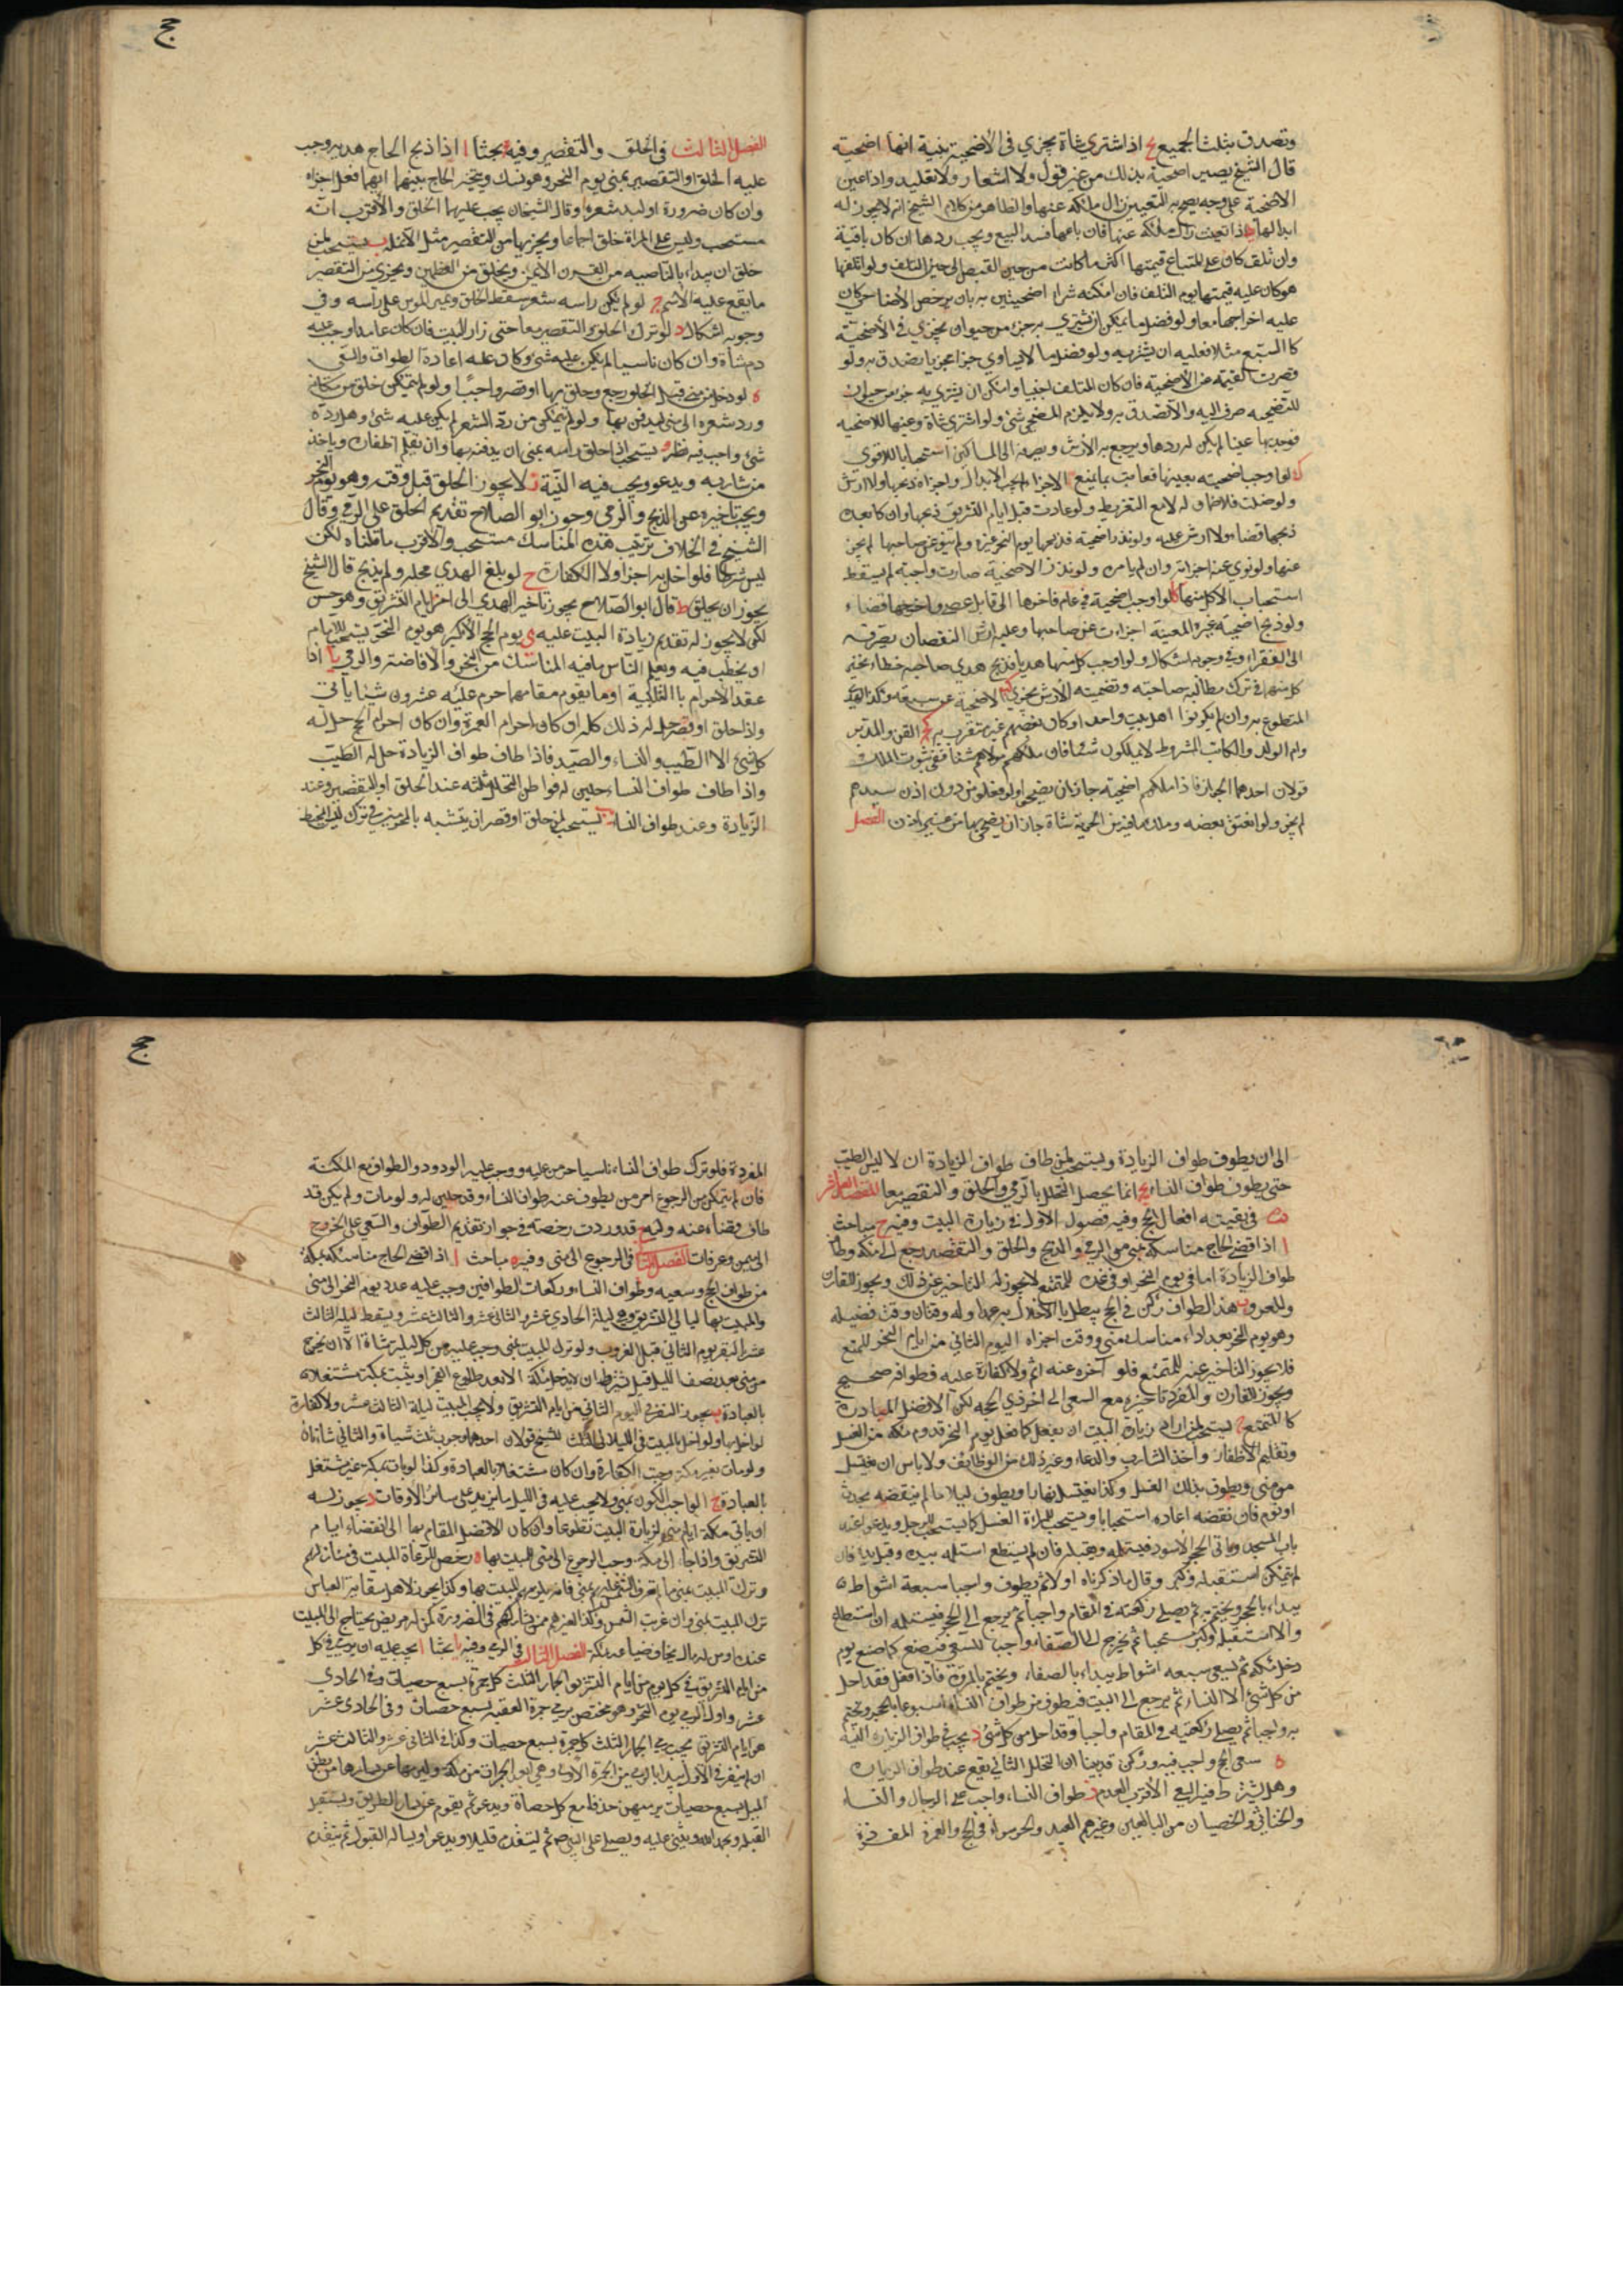 وتصدق بثلث الجميع ح اذا اشترى شاة تجزي في الأضحية بنية انها اضحية
قال الشيخ يصير اضحية بذلك من غير قول ولا اشعار ولا تقليد واذا عين
الاضحية على وجه يصح به التعيين زال ملكه عنها والظاهر من كلام الشيخ انه لا يجوز له
ابدالها اذا تعينت زال ملكه عنها فان باعها فسد البيع ويجب ردها ان كان باقية
وان تلف كان على المتباع قيمتها اكثر ما كانت من حين القبض الى حين التلف ولو اتلفها
هو كان عليه قيمتها يوم التلف فان امكنه شرا اضحيتين به بان يرخص الأضاحي كان
عليه اخراجهما معا ولو فضل ما يمكن ان يشتري به جزء من حيوان تجزي في الأضحية
كالسبع مثلا فعليه ان يشتريه ولو فضل ما لا يساوي جزا مجزيا يصدق به ولو
قصرت القيمة عن الأضحية فان كان المتلف اجنبيا وامكن ان يشتري به جزء من حيوان
للتضحية صرف اليه والا تصدق به ولا يلزم المضحي شئ ولو اشترى شاة وعينها للاضحية
فوجد بها عيبا لم يكن له ردها ويرجع بالأرش ويصرفه الى المساكين استحبابا للاقوى
ك لو اوجب اضحيته بعينها فعابت بما يمنع الاجزاء لم يجب الابدال واجزاه ذبحها ولا ارش
ولو ضلت فلا ضمان له لا مع التفريط ولو عادت قبل ايام التشريق ذبحها وان كان بعد
ذبحها قضاء ولا ارش عليه ولو نذر اضحية فذبحها يوم النحر غيره ولم ينو عن صاحبها لم يجز
عنها ولو نوى عنه اجزأته وان لم يامره ولو نذر الاضحية صارت واجبة لم يسقط
استحباب الأكل منها كا لو اوجب اضحية في عام فاخرها الى قابل عصى واخرجها قضاء
ولو ذبح اضحية غيره المعينة اجزات عن صاحبها وعليه ارش النقصان يصرفه
الى الفقراء وفي وجوبه اشكال ولو اوجب كل منهما هديا فذبح هدي صاحبه خطاء تخير
كل منهما في ترك مطالبة صاحبه وتضمينه الأرش كب يجزي الاضحية عن سبعة وكذا الهدي
المتطوع به وان لم يكونوا اهل بيت واحد او كان بعضهم غير متقرب به كج القن والمدبر
وام الولد والمكاتب المشروط لا يملكون شيئا فان ملكهم مولاهم شيئا ففي ثبوت الملك
قولان احدهما الجواز فاذا ملكهم اضحية جاز ان يضحوا ولو فعلوا من دون اذن سيدهم
لم يجز ولو انعتق بعضه وملك ما فيه من الحرية شاة جاز ان يضحي بها من غير اذن الفصل
الفصل الثالث في الحلق والتقصير وفيه بحثا ا اذا ذبح الحاج هديه وجب
عليه الحلق او التقصير بمنى يوم النحر وهو نسك ويتخير الحاج بينهما ايهما فعل اجزاه
وان كان ضرورة او لبد شعره وقال الشيخان يجب عليهما الحلق والأقرب انه
مستحب وليس على المراة حلق اجماعا ويجزيها من التقصير مثل الأنملة ب يستحب لمن
حلق ان يبداء بالناصيه من القرن الأيمن ويحلق من العظمين ويجزي من التقصير
ما يقع عليه الأسم ج لو لم يكن على راسه شعر سقط الحلق ويمر الموسى على راسه وفي
وجوبه اشكال د لو ترك الحلق والتقصير معا حتى زار البيت فان كان عامدا وجب عليه
دم شاة وان كان ناسيا لم يكن عليه شئ وكان عليه اعادة الطواف والسعي
ه لو دخل من منى قبل الحلق رجع وحلق بها او قصر واجبا ولو لم يتمكن حلق من مكانه
ورد شعره الى منى ليدفن بها ولو لم يتمكن من رد الشعر لم يكن عليه شئ وهل رده
شئ واجب فيه نظر و يستحب اذا حلق راسه بمنى ان يدفنه بها وان يقلم اظفاره وياخذ
من شاربه ويدعو ويجب فيه النية ز لا يجوز الحلق قبل وقته وهو يوم النحر
ويجب تاخيره عن الذبح والرمي وجوز ابو الصلاح تقديم الحلق على الرمي وقال
الشيخ في الخلاف ترتيب هذه المناسك مستحب والأقرب ما قلناه لكن
ليس شرطا فلو اخل به اجزا ولا الكفارة ح لو بلغ الهدي محله ولم يذبح قال الشيخ
يجوز ان يحلق ط قال ابو الصلاح يجوز تاخير الهدي الى اخر ايام التشريق وهو حسن
لكن لا يجوز له تقديم زيادة البيت عليه ى يوم الحج الأكبر هو يوم النحر يستحب للامام
ان يخطب فيه ويعلم الناس ما فيه المناسك من النحر والافاضة والرمي يا اذا
عقد الأحرام باالتلبية او ما يقوم مقامها حرم عليه عشرون شيئا يأتي
واذا حلق او قصر حل له ذلك كله ان كان احرام العمرة وان كان احرام الحج حل له
كل شئ الا الطيب والنساء والصيد فاذا طاف طواف الزيادة حل له الطيب
واذا طاف طواف النساء حلين له فواطن التحلل ثلثه عند الحلق او التقصير وعند
الزيادة وعند طواف النساء يب يستحب لمن حلق او قصر ان يتشبه بالمحرمين في ترك لبس المخيط
الى ان يطوف طواف الزيادة ويستحب لمن طاف طواف الزيادة ان لا يمس الطيب
حتى يطوف طواف النساء يج انما يحصل التحلل بالرمي والحلق والتقصير معا المقصد العاشر
في بقيته افعال الحج وفيه فصول الاول في زيارة البيت وفيه ح مباحث
ا اذا قضى الحاج مناسكه بمنى من الرمي والذبح والحلق والتقصير رجع الى مكة وطاف
طواف الزيادة اما في يوم النحر او في غده للمتمتع لا يجوز له التاخير عن ذلك ويجوز للقارن
وللمفرد ب هذا الطواف ركن في الحج يبطل بالاخلال به عمدا وله وقتان وقت فضيلة
وهو يوم النحر بعد اداء مناسك منى ووقت اجزاء اليوم الثاني من ايام النحر للمتمتع
فلا يجوز التاخير عنه للمتمتع فلو آخره عنه اثم ولا كفارة عليه فطوافه صحيح
ويجوز للقارن والمفرد تاخيره مع السعي الى اخر ذي الحجه لكن الافضل المبادرة
كالمتمتع ج يستحب لمن اراد زيارة البيت ان يفعل كما فعل يوم قدوم مكة من الغسل
وتقليم الأظفار واخذ الشارب والدعاء وغير ذلك من الوظائف ولا باس ان يغتسل
من منى ويطوف بذلك الغسل وكذا يغتسل نهارا ويطوف ليلا ما لم ينقضه بحدث
او نوم فان نقضه اعاده استحبابا ويستحب للمراة الغسل كما يستحب للرجل ويدعو عند
باب المسجد وياتي الحجر الأسود فيستلمه ويقبله فان لم يستطع استلمه بيده وقبل يده فان
لم يتمكن استقبله وكبر وقال ما ذكرناه اولا ثم يطوف واجبا سبعة اشواط
يبداء بالحجر ويختم به ثم يصلي ركعتيه في المقام واجبا ثم يرجع الى الحجر فيستلمه ان استطاع
والا استقبله وكبر مستحبا ثم يخرج الى الصفاء واجبا للسعي فيصنع كما صنع يوم
دخل مكة ثم يسعى سبعه اشواط يبداء بالصفاء ويختم بالمروة فاذا فعل فقد احل
من كل شئ الا النساء ثم يرجع الى البيت فيطوف من طواف النساء اسبوعا بالحجر ويختم
به واجبا ثم يصلي ركعتيه في المقام واجبا وقد احل من كل شئ د يجب في طواف الزيارة النية
ه سعي الحج واجب فيه وركن قد بينا ان التحلل الثاني يقع عند طواف الزيارة
وهل يشترط فيه السعي الأقرب العدم ز طواف النساء واجب على الرجال والنساء
والخناثى والخصيان من البالغين وغيرهم العبيد والحر سواء في الحج والعمرة المفردة
المفردة فلو ترك طواف النساء ناسيا حرمن عليه ووجب عليه العود والطواف مع المكنة
فان لم يتمكن من الرجوع امر من يطوف عنه طواف النساء وقد حلين له ولو مات ولم يكن قد
طاف قضاء عنه وليه ح قد وردت رخصة في جواز تقديم الطواف والسعي على الخروج
الى منى وعرفات الفصل الثاني في الرجوع الى منى وفيه مباحث ا اذا قضى الحاج مناسكه بمكة
من طواف الحج وسعيه وطواف النساء وركعات الطوافين وجب عليه عدد يوم النحر الى منى
والمبيت بها ليالي التشريق وهي ليلة الحادي عشر والثاني عشر والثالث عشر ويسقط ليلة الثالث
عشر النفر يوم الثاني قبل الغروب ولو ترك المبيت بمنى وجب عليه عن كل ليلة شاة الا ان يخرج
من منى بعد نصف الليل قيل بشرط ان لا يدخل مكة الا بعد طلوع الفجر او يبيت بمكة مشتغلا
بالعبادة ب يجوز النفر في اليوم الثاني من ايام التشريق ولا يجب المبيت ليلة الثالث عشر ولا كفارة
لو اخل بها ولو اخل بالمبيت في الليالي الثلث للشيخ قولان احدهما وجوب ثلث شياة والثاني شاتان
ولو مات بغير مكة وجبت الكفارة وان كان مشتغلا بالعبادة وكذا لو بات بمكة غير مشتغل
بالعبادة ج الواجب الكون بمنى ولا يجب عليه في الليل ما يزيد على سائر الأوقات د يجوز له
ان ياتي مكة ايام منى لزيارة البيت تطوعا وان كان الأفضل المقام بها الى انقضاء ايام
التشريق واذا جاء الى مكة وجب الرجوع الى منى للمبيت بها ه رخص للرعاة المبيت في منازلهم
وترك المبيت بمنى ما لم تغرب الشمس عليهم بمنى فانه يلزمهم المبيت بها وكذا يجوز لاهل سقاية العباس
ترك المبيت بمنى وان غربت الشمس وكذا لغيرهم ممن يشاركهم في الضرورة كمن له مريض يحتاج الى المبيت
عنده او من له مال يخاف ضياعه بمكة الفصل الثالث في الرمي وفيه بحثا ا يجب عليه ان يرمي في كل
من ايام التشريق في كل يوم من ايام التشريق الجمار الثلث كل جمرة بسبع حصيات وفي الحادي
عشر واول الرمي يوم النحر وهو مختص برمي جمرة العقبه بسبع حصيات وفي الحادى عشر
هو ايام التشريق يجب رمي الجمار الثلث كل جمرة بسبع حصيات وكذا في الثاني عشر والثالث عشر
ان لم ينفر في الأول يبدا بالرمي من الجمرة الاولى وهي ابعد الجمرات من مكة وليرمها عن يسارها من بطن
المسيل بسبع حصيات يرميهن حذفا مع كل حصاة ويدعو ثم يقوم عن يسار الطريق ويستقبل
القبلة ويحمد الله ويثني عليه ويصلي على النبي ص ثم ليتقدم قليلا ويدعو ويساله القبول ثم يتقدم